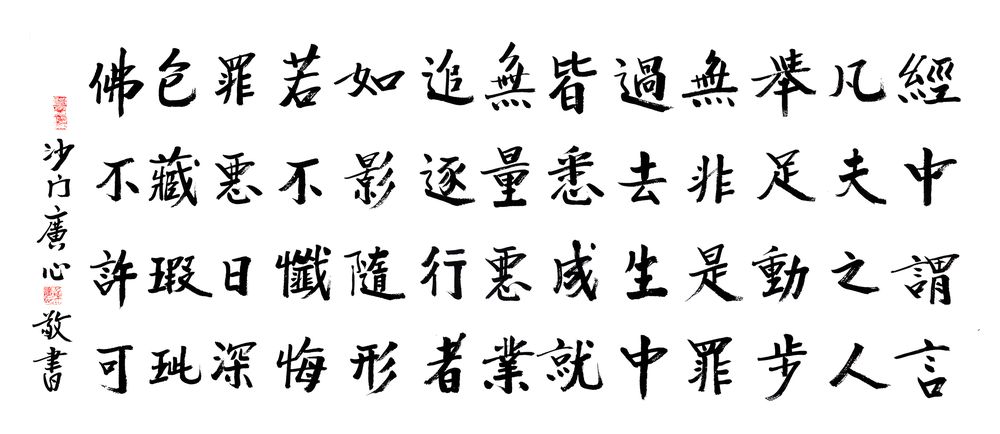 經中謂言
凡夫之人
舉足動步
無非是罪
過去生中
皆悉成就
無量惡業
追逐行者
如影隨形
若不懺悔
罪惡日深
包藏瑕玼
佛不許可
沙门廣心敬書